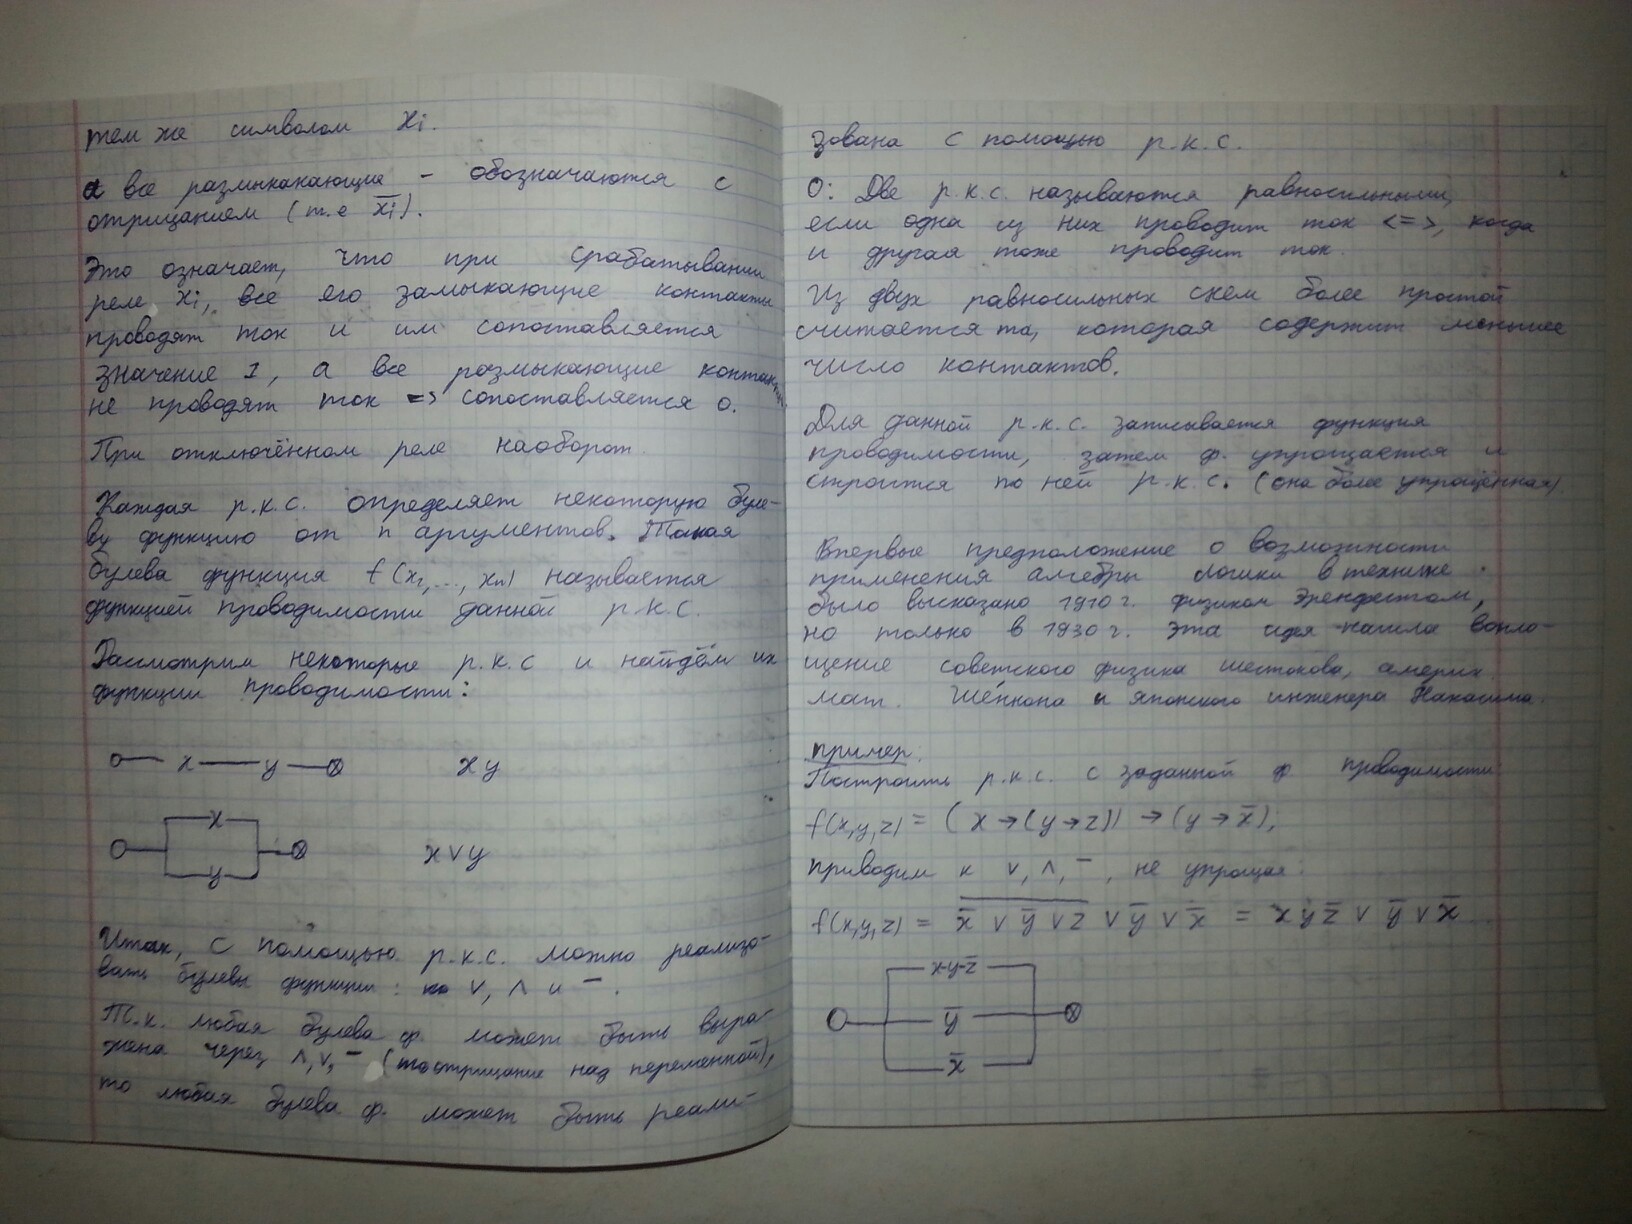 тем же символом xi.
а все размыкакающие – обозначаются с
отрицанием (т.е x̅i).
Это означает, что при срабатывании
реле xi, все его замыкающие контакты
проводят ток и им сопоставляется
значение 1, а все размыкающие контакты
не проводят ток => сопоставляется 0.
При отключённом реле наоборот.
Каждая р.к.с. определяет некоторую буле-
ву функцию от n аргументов. Такая
булева функция f(x1,...,xn) называется
функцией проводимости данной р.к.с.
Рассмотрим некоторые р.к.с и найдём их
функции проводимости:
x y xy
x
y x∨y
Итак, с помощью р.к.с. можно реализо-
вать булевы функции: ∨, ∧ и ‾.
Т.к. любая булева ф. может быть выра-
жена через ∧,∨,‾ (то отрицание над переменной),
то любая булева ф. может быть реали-
зована с помощью р.к.с.
О: Две р.к.с. называются равносильными,
если одна из них проводит ток <=>, когда
и другая тоже проводит ток.
Из двух равносильных схем более простой
считается та, которая содержит меньшее
число контактов.
Для данной р.к.с. записывается функция
проводимости, затем ф. упрощается и
строится по ней р.к.с. (она более упрощённая)
Впервые предположение о возможности
применения алгебры логики в технике
было высказано 1910 г. физиком Эренфестом,
но только в 1930 г. эта идея нашла вопло-
щение советского физика шестокова, америк.
мат. Шеннона и японского инженера Накасима.
пример:
Построить р.к.с. с заданной ф. проводимости
f(x,y,z) = (x→(y→z)) → (y→x̅);
приводим к ∨, ∧, ‾, не упрощая:
f(x,y,z) = x̅̅ ̅∨̅ ̅y̅̅ ̅∨̅ ̅z̅ ∨ y̅ ∨ x̅ = x y z̅ ∨ y̅ ∨ x̅
x-y-z̅
y̅
x̅